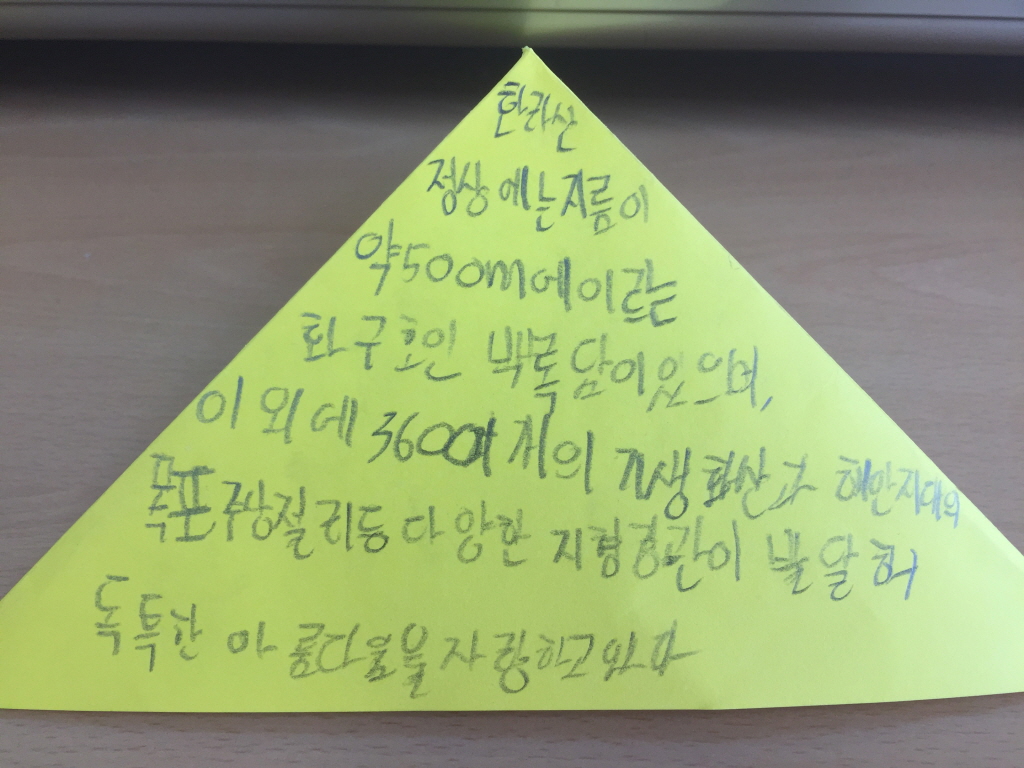 한라산
정상에는지름이
약500m에이르는
화구호인 백록담이있으며,
이 외에 3600여 개의 기생화산과 해안지대의
폭포 주상절리등 다양한 지형경관이 발달해
독특한 아름다움을 자랑하고있다